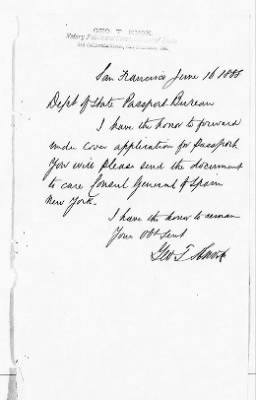 GEO T. KNOX.
Notary Public and Commissioner of Deeds
San Francisco June 16 1888
Dept of State Passport Bureau
I have the honor to forward
under cover application for Passport
You will please send the document
to care Consul General of Spain
New York.
I have the honor to remain
Your Obt Servt
Geo T Knox